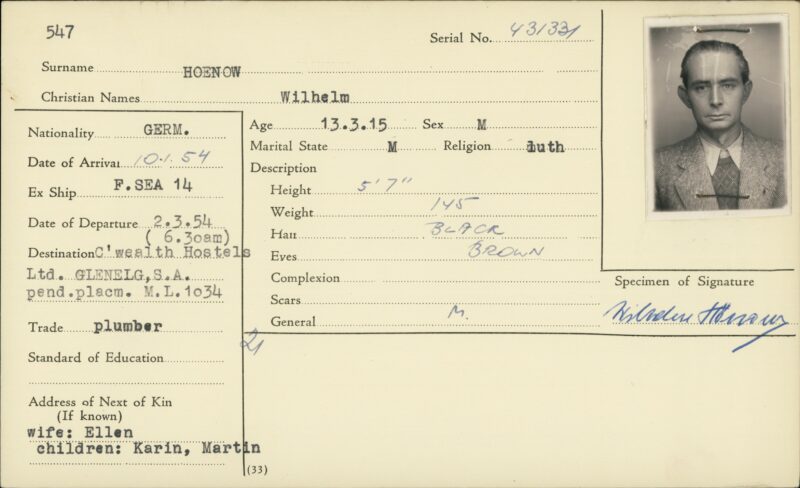 547
Serial No. 431331
Surname HOENOW
Christian Names Wilhelm
Nationality GERM.
Date of Arrival 10.1.54
Ex Ship F.SEA 14
Date of Departure 2.3.54
( 6.30am)
Destination C'wealth Hostels
Ltd. GLENELG,S.A.
pend.placm. M.L.1034
Trade plumber
Standard of Education
Address of Next of Kin
(If known)
wife: Ellen
children: Karin, Martin
Age 13.3.15 Sex M
Marital State M Religion luth
Description
Height 5'7"
Weight 145
Hair BLACK
Eyes BROWN
Complexion
Scars
General M.
21
(33)
Specimen of Signature
Wilhelm Hoenow